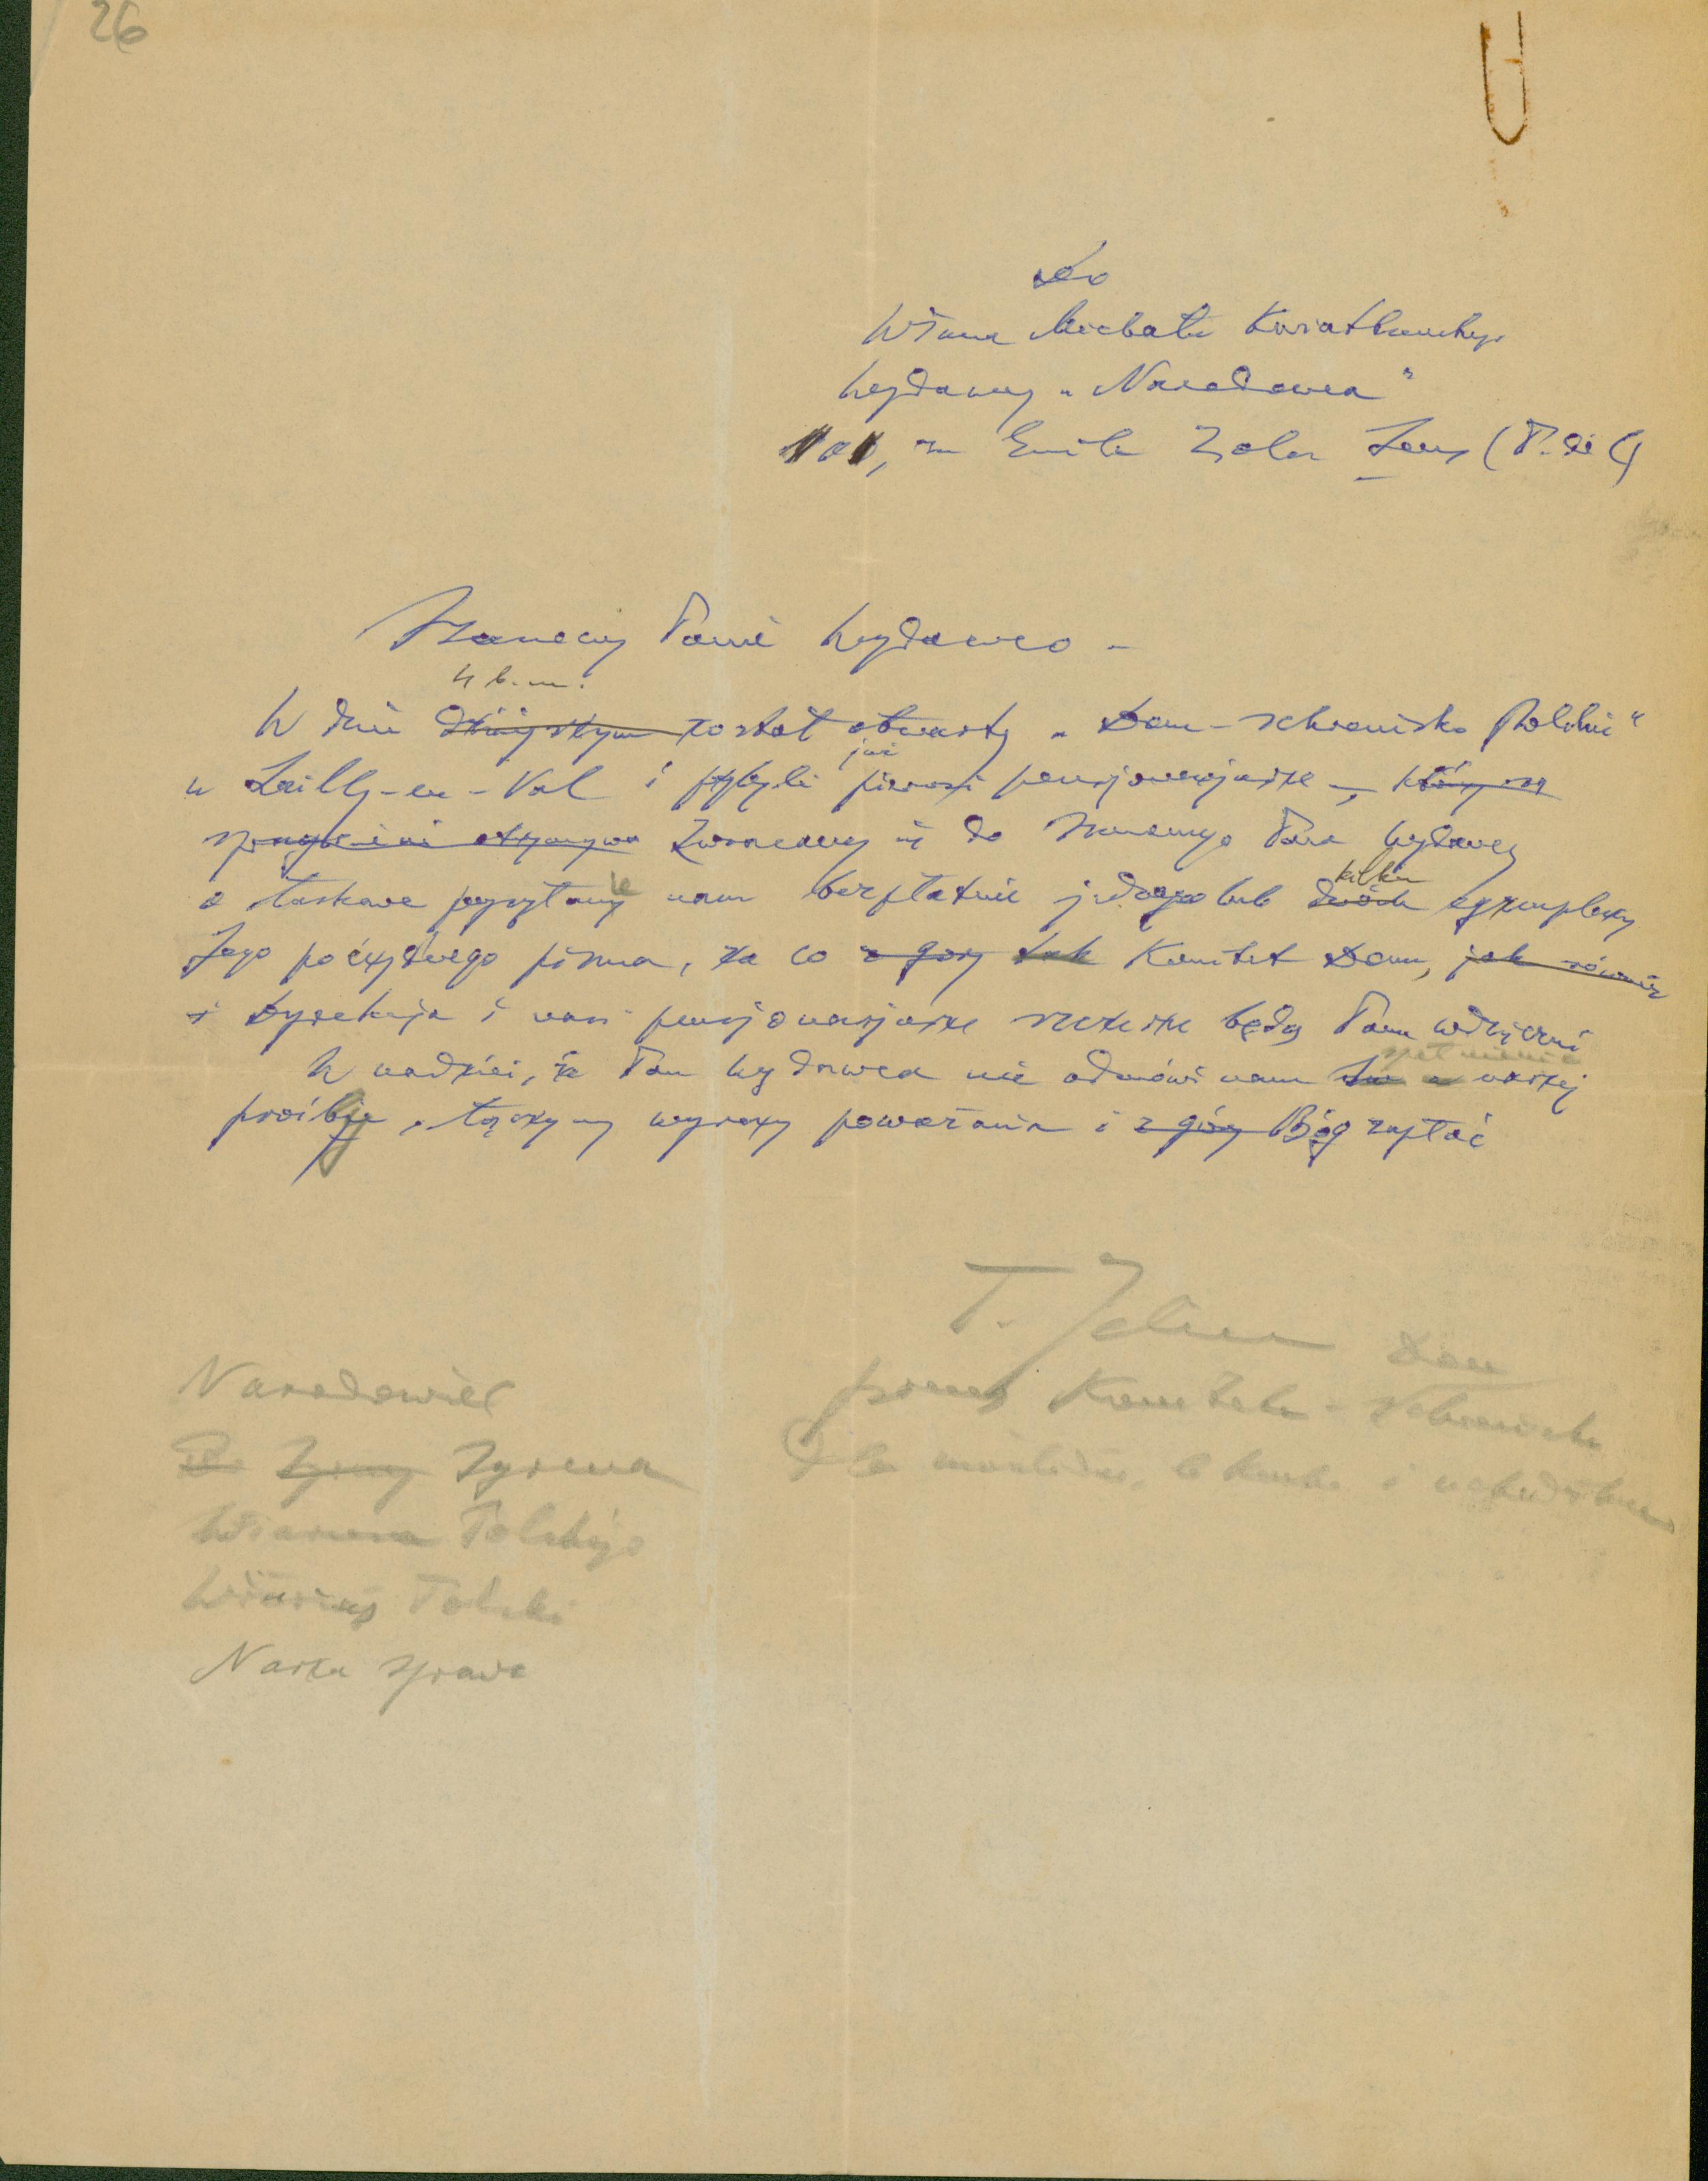 26
Do
WPana Michała Kwiatkowskiego
Wydawcy „Narodowca"
101, rue Emile Zola Lens (P. de C)
Szanowny Panie Wydawco -
4 b.m.
W dniu dzisiejszym został otwarty „Dom-schronisko Polskie"
już
w Lailly-en-Val i przybyli pierwsi pensjonarjusze -, którzy są
zwracamy się do Szanownego Pana Wydawcy
kilku
o łaskawe przysyłanie nam bezpłatnie jednego lub dwóch egzemplarzy
Jego poczytnego pisma, za co z góry tak Komitet Domu, jak również
i Dyrekcja i nasi pensjonarjusze szczerze będą Panu wdzięczni
spełnienia
W nadziei, że Pan Wydawca nie odmówi nam naszej
prośby, łączymy wyrazy poważania i z góry Bóg zapłać
T.
Dom
prezes Komitetu - Schroniska
dla
Narodowiec
Syrena
Wiarusa Polskiego
Wiarus Polski
Nasza sprawa